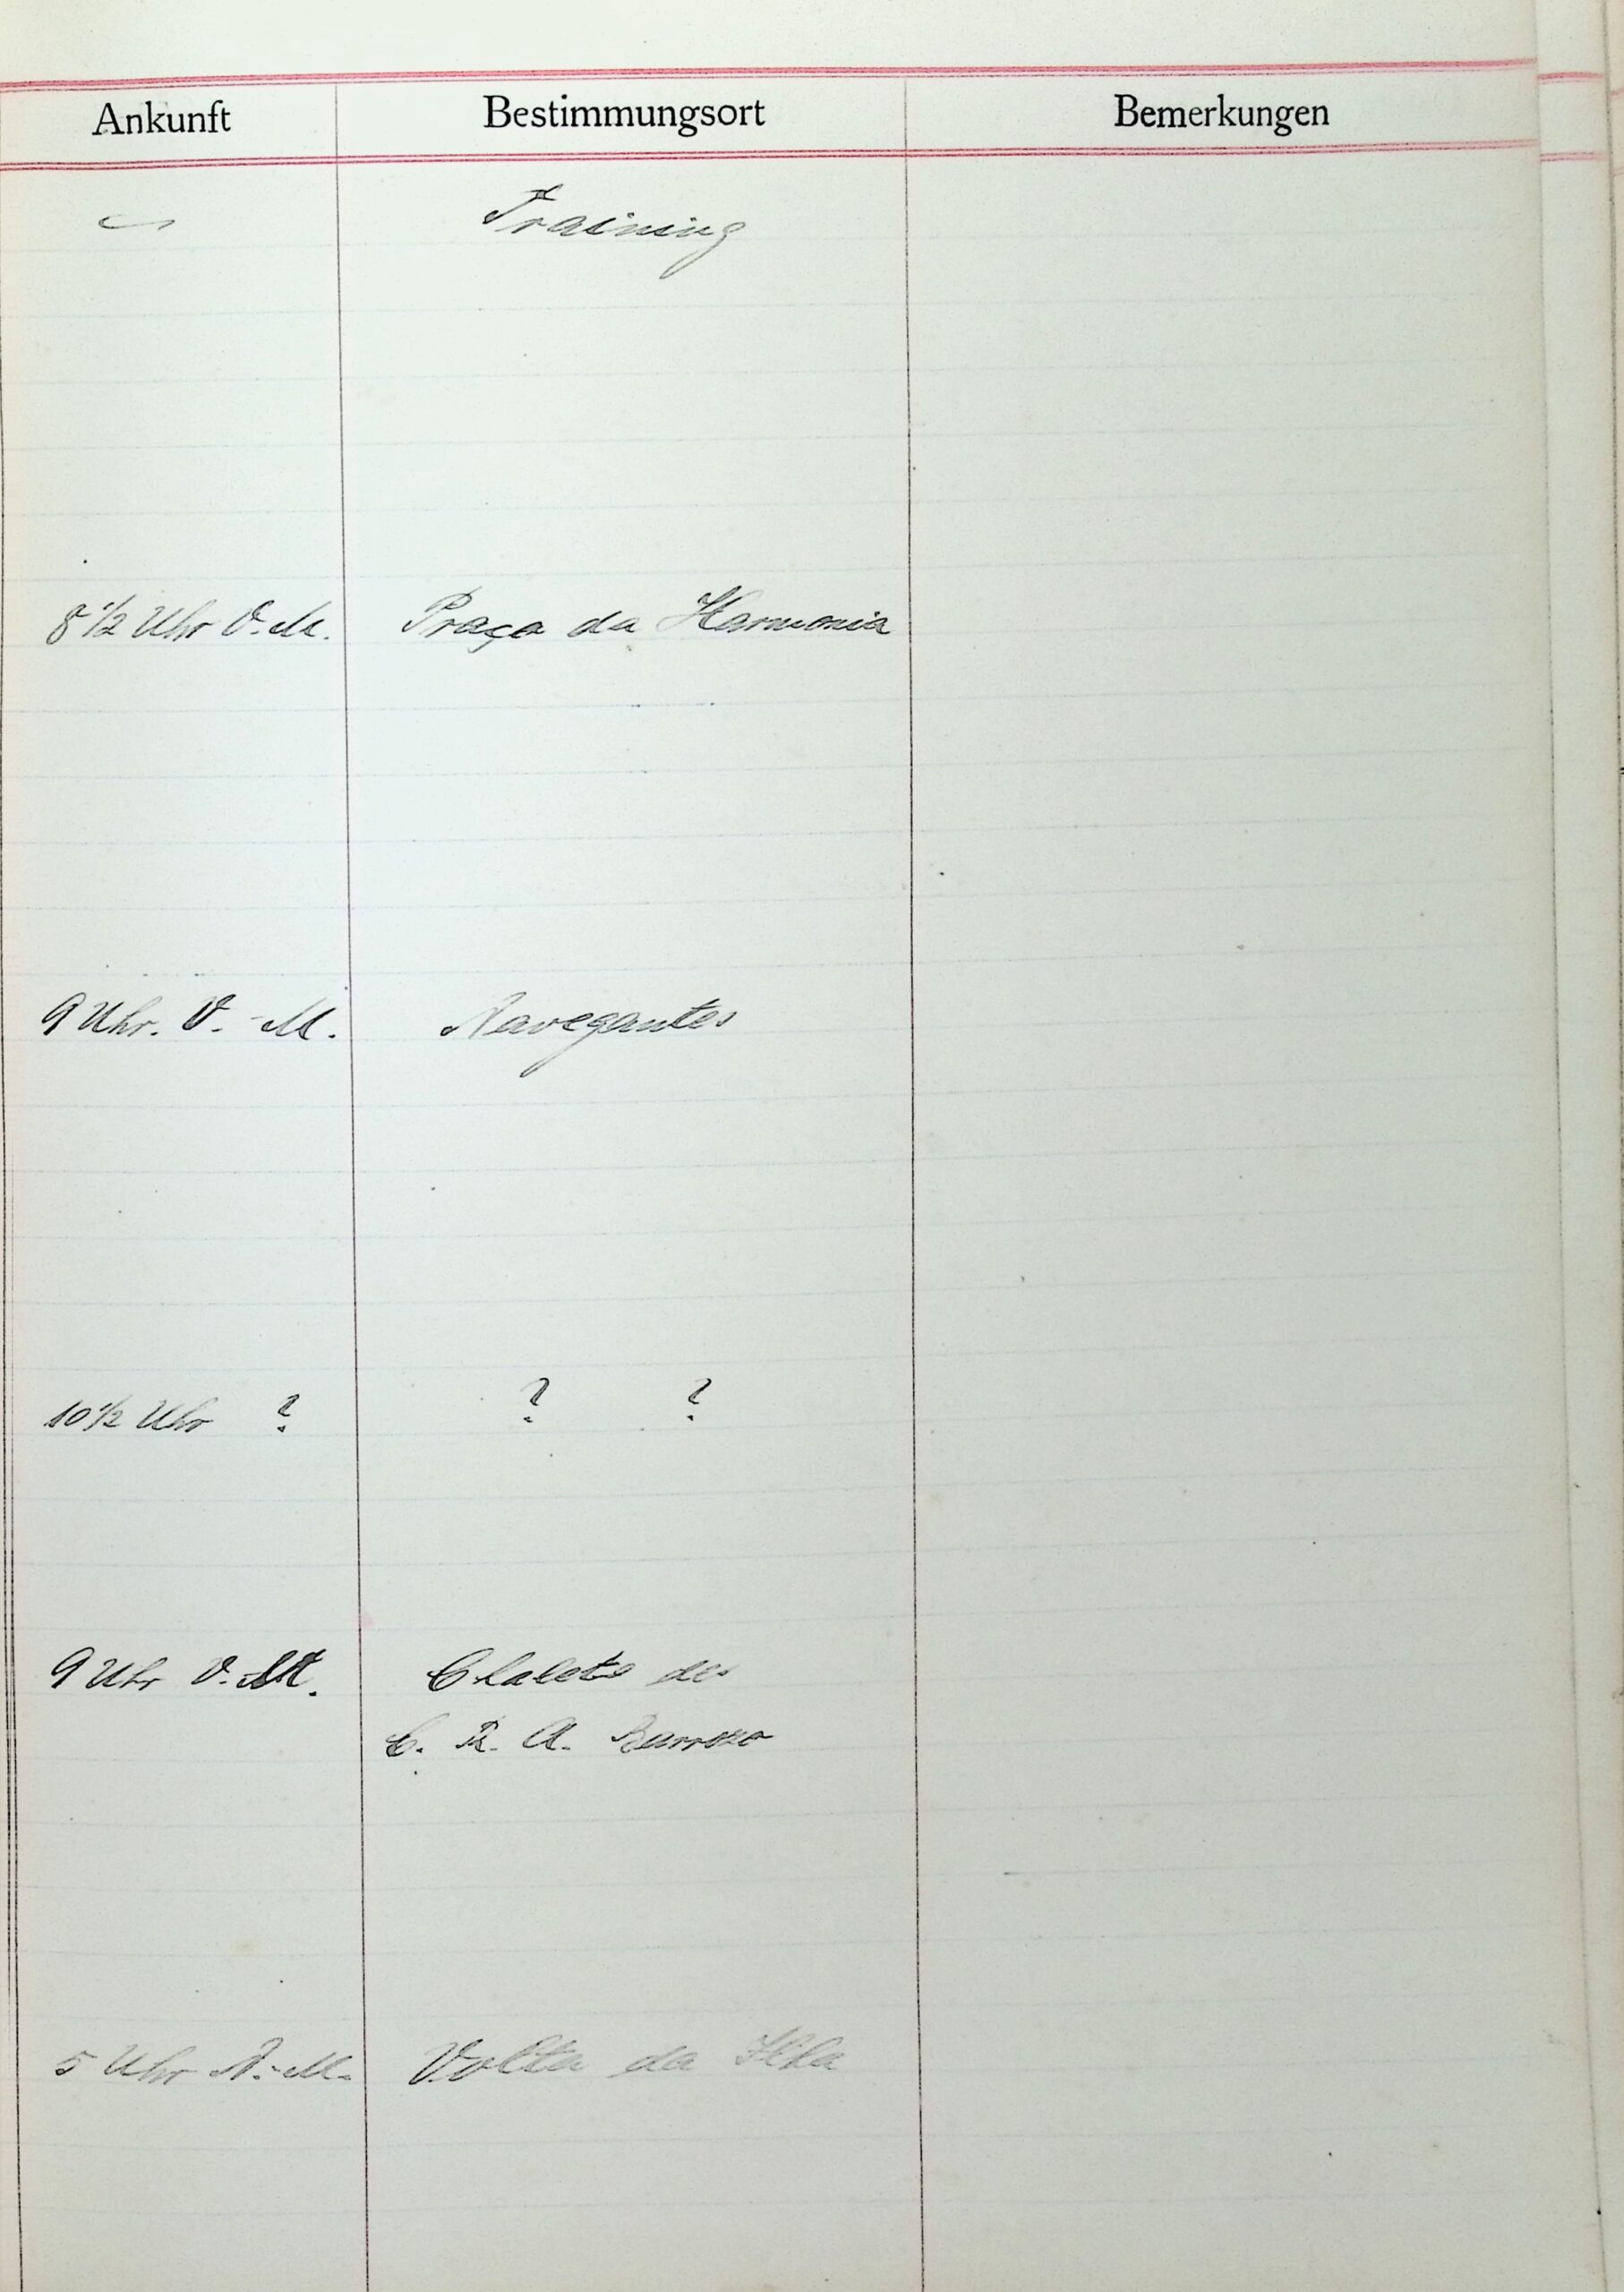 Ankunft Bestimmungsort Bemerkungen
Training
8 1/2 Uhr V.-M. Praça da Harmonia
9 Uhr. V.-M. Navegantes
10 1/2 Uhr ? ? ?
9 Uhr V.-M. Chalets des
C. R. A. Barroso
5 Uhr N.-M. Volta da Ilha